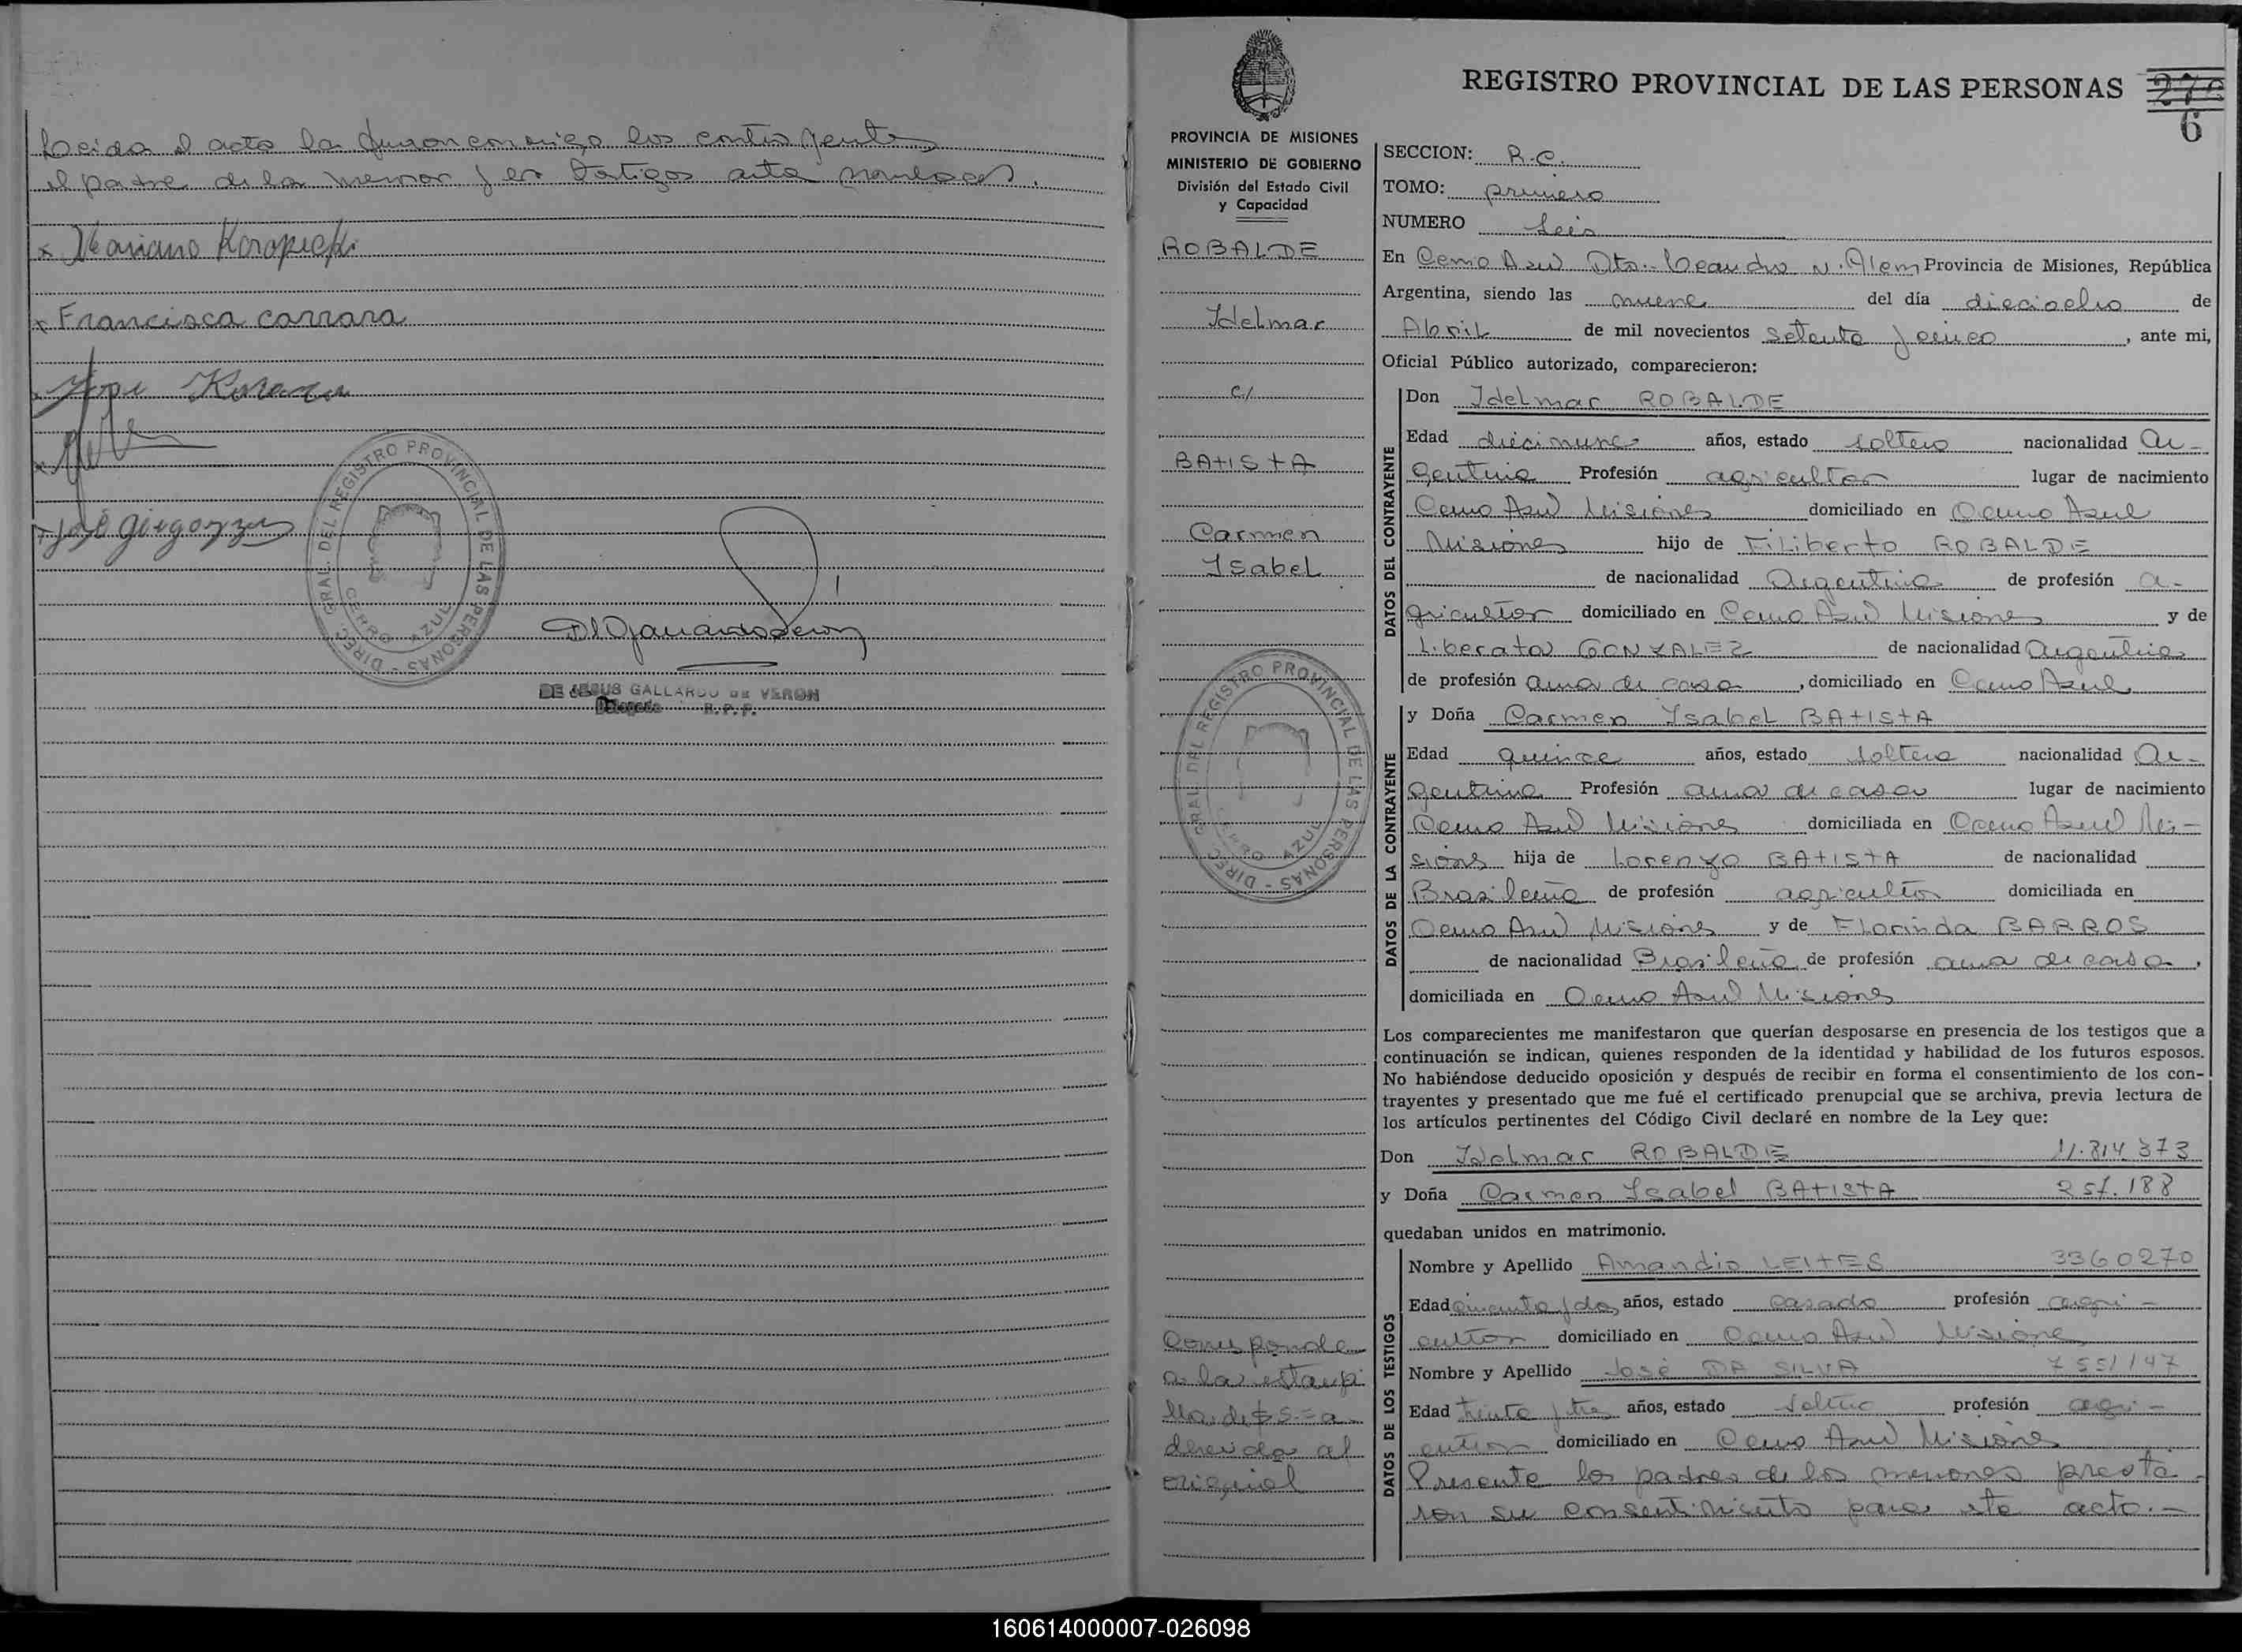 Leida el acta la firman conmigo los contrayentes
el padre de la menor y los testigos arta nombrados.
x Mariano Koropecki
x Francisca Carrara
x José
DIREC. GRAL. DEL REGISTRO PROVINCIAL DE LAS PERSONAS - CERRO AZUL
DE JESUS GALLARDO DE VERON
Delegada R.P.P.
PROVINCIA DE MISIONES
MINISTERIO DE GOBIERNO
División del Estado Civil
y Capacidad
ROBALDE
Idelmar
c/
BAtIStA
Carmen
Isabel
DIREC. GRAL. DEL REGISTRO PROVINCIAL DE LAS PERSONAS - CERRO AZUL
Corresponde
a la estampi
lla de $ 5.= a-
dherida al
original
REGISTRO PROVINCIAL DE LAS PERSONAS 270
6
SECCION: R.C.
TOMO: primero
NUMERO Seis
En Cerro Azul Dto. Leandro N. Alem Provincia de Misiones, República
Argentina, siendo las nueve del día dieciocho de
Abril de mil novecientos setenta y cinco, ante mi,
Oficial Público autorizado, comparecieron:
DATOS DEL CONTRAYENTE
Don Idelmar ROBALDE
Edad diecinueve años, estado soltero nacionalidad Ar-
gentina Profesión agricultor lugar de nacimiento
Cerro Azul Misiones domiciliado en Cerro Azul
Misiones hijo de Filiberto ROBALDE
de nacionalidad Argentina de profesión a-
gricultor domiciliado en Cerro Azul Misiones y de
Liberata GONZALEZ de nacionalidad Argentina
de profesión ama de casa, domiciliado en Cerro Azul
DATOS DE LA CONTRAYENTE
y Doña Carmen Isabel BAtIStA
Edad quince años, estado soltera nacionalidad Ar-
gentina Profesión ama de casa lugar de nacimiento
Cerro Azul Misiones domiciliada en Cerro Azul Mi-
siones hija de Lorenzo BAtIStA de nacionalidad
Brasileña de profesión agricultor domiciliada en
Cerro Azul Misiones y de Florinda BARROS
de nacionalidad Brasileña de profesión ama de casa,
domiciliada en Cerro Azul Misiones
Los comparecientes me manifestaron que querían desposarse en presencia de los testigos que a
continuación se indican, quienes responden de la identidad y habilidad de los futuros esposos.
No habiéndose deducido oposición y después de recibir en forma el consentimiento de los con-
trayentes y presentado que me fué el certificado prenupcial que se archiva, previa lectura de
los artículos pertinentes del Código Civil declaré en nombre de la Ley que:
Don Idelmar ROBALDE 11.814.373
y Doña Carmen Isabel BAtIStA 251.188
quedaban unidos en matrimonio.
DATOS DE LOS TESTIGOS
Nombre y Apellido Amandio LEItES 3360270
Edad cincuenta y dos años, estado casado profesión agri-
cultor domiciliado en Cerro Azul Misiones
Nombre y Apellido José DA SILVA 7551147
Edad treinta y tres años, estado soltero profesión agri-
cultor domiciliado en Cerro Azul Misiones
Presente los padres de los menores presta-
ron su consentimiento para este acto.-
160614000007-026098